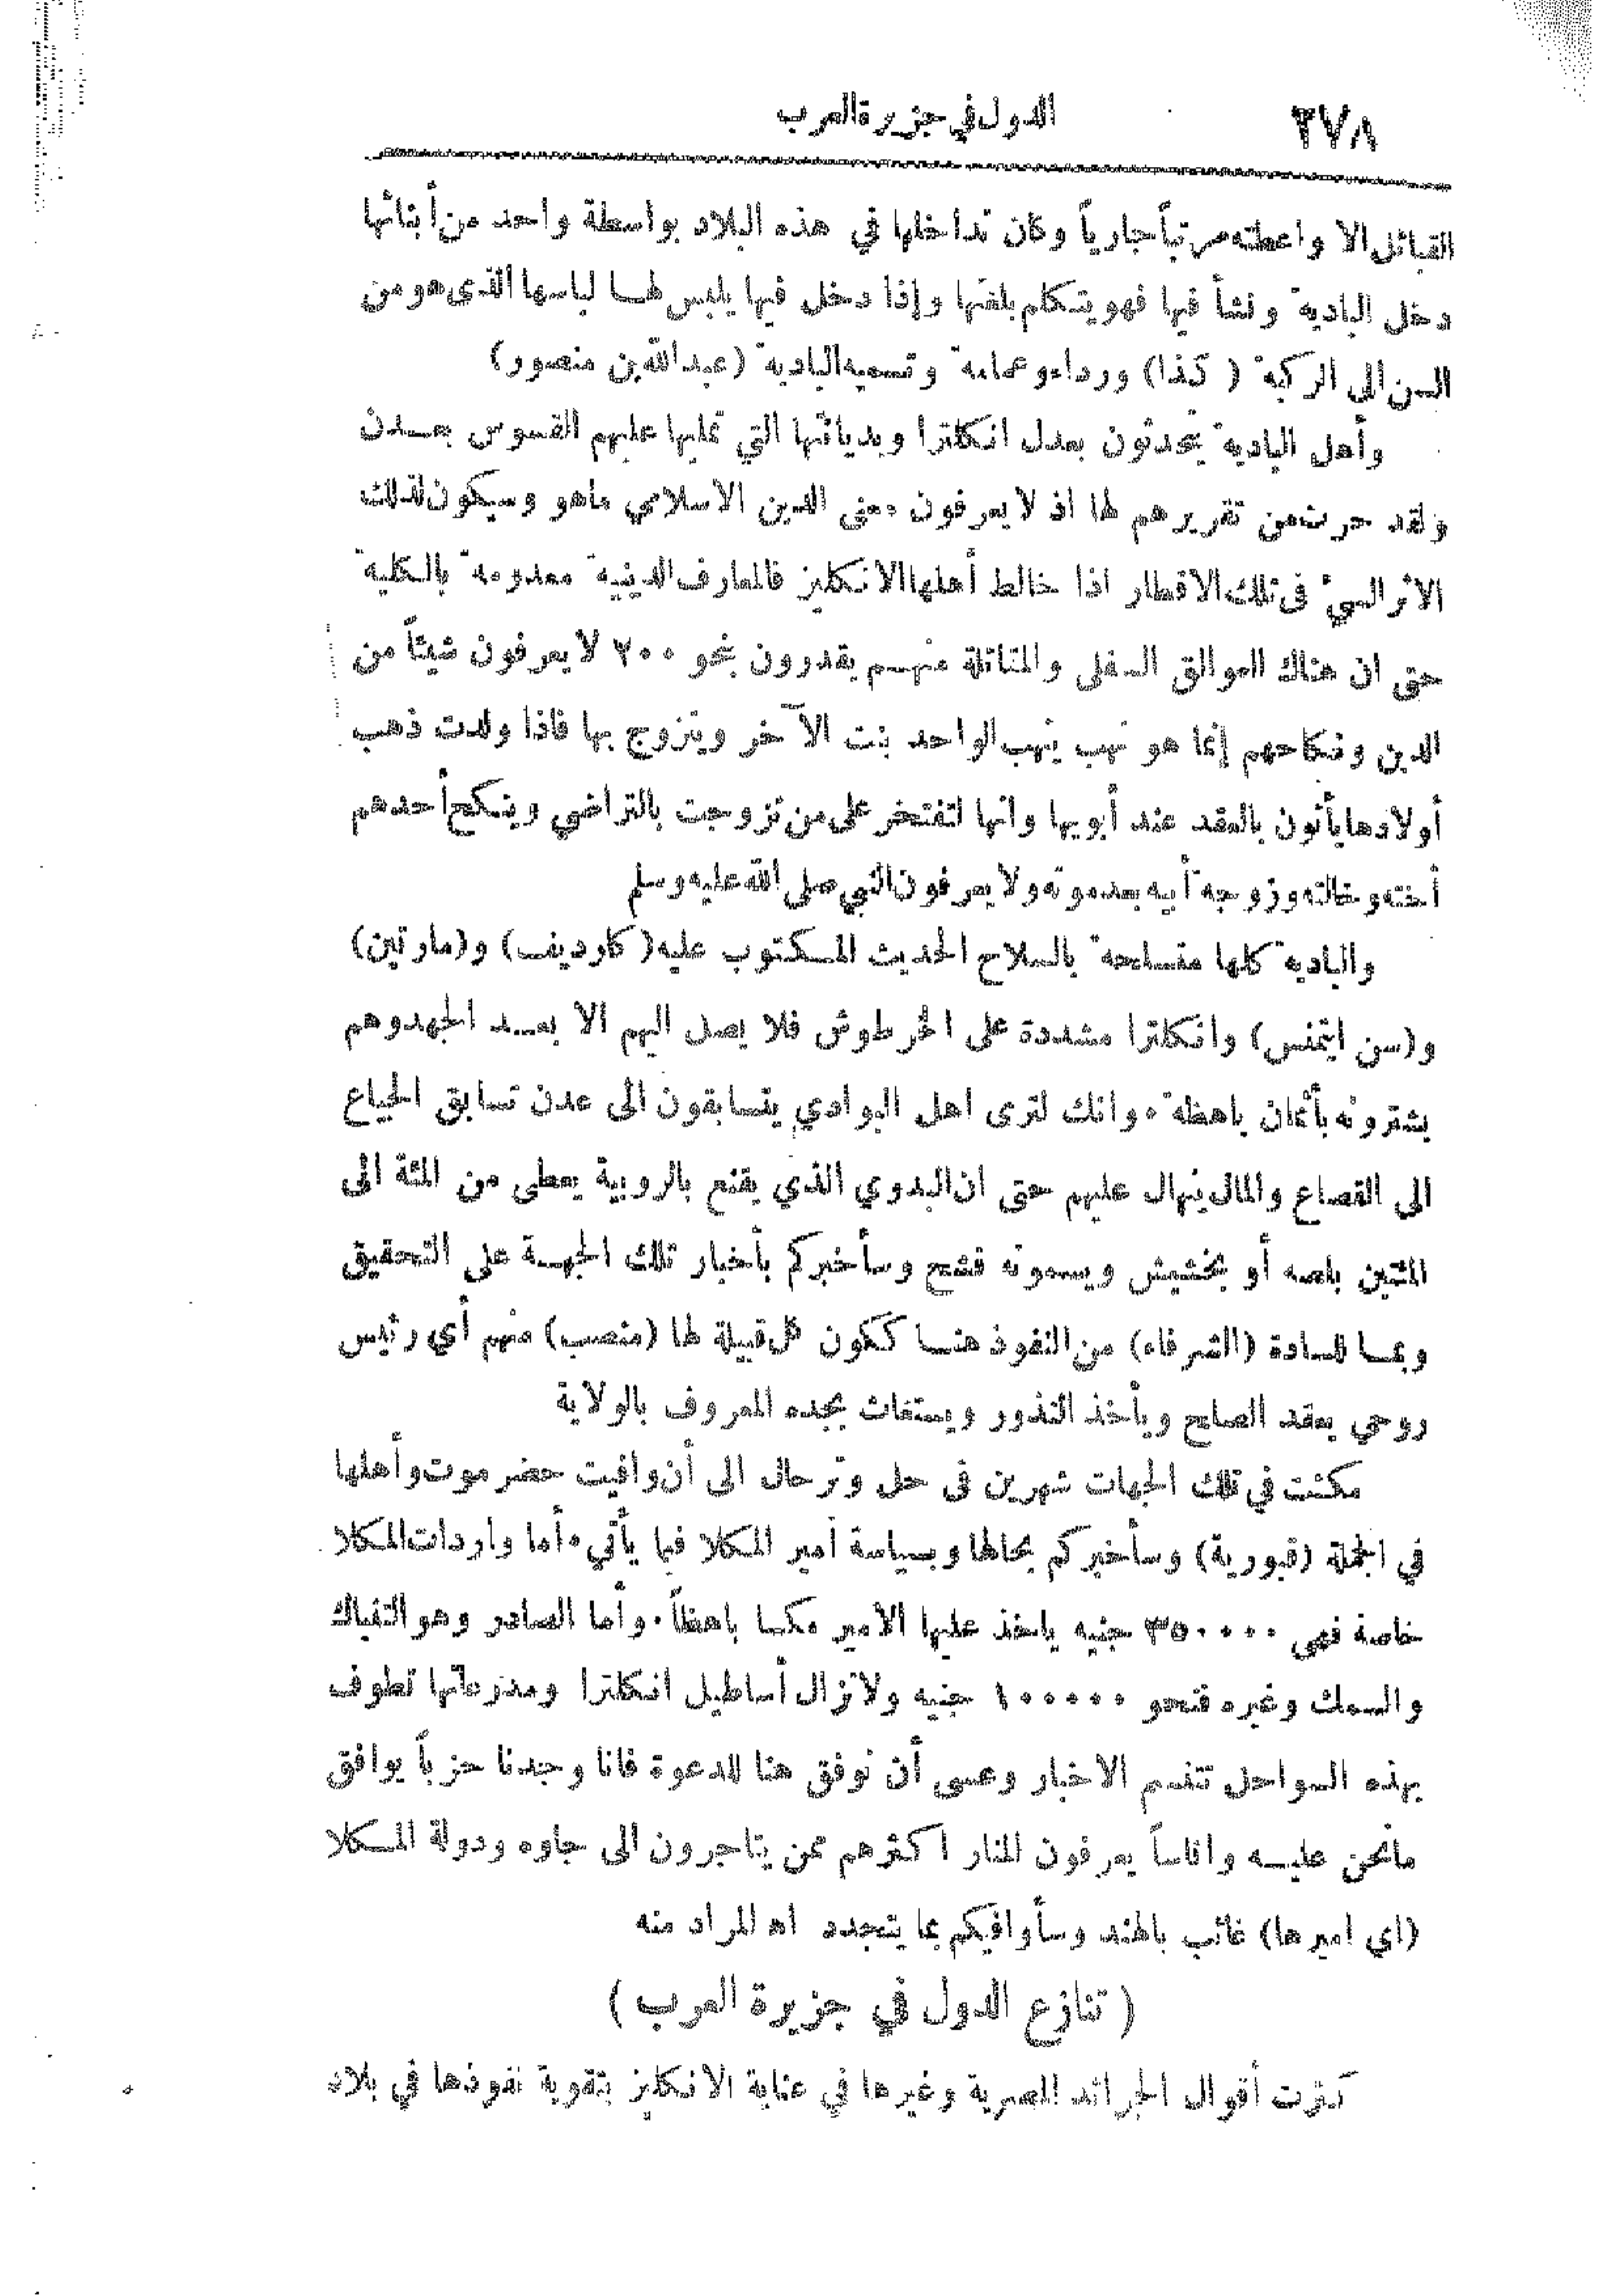 ٢٧٨
الدول في جزيرة العرب
القبائل الا واعطته مرتباً جارياً وكان تداخلها في هذه البلاد بواسطة واحد من أبنائها
دخل البادية ونشأ فيها فهو يتكلم بلغتها وإذا دخل فيها يلبس لها لباسها الذي هو من
السن الى الركبة ( كذا ) ورداء وعمامة وتسميه البادية (عبدالله بن منصور)
وأهل البادية يتحدثون بعدل انكلترا وبديانتها التي تمليها عليهم القسوس بعدن
ولقد حرت من تقريرهم لها اذ لا يعرفون معنى الدين الاسلامي ماهو وسيكون لذلك
الاثر السيئ فى تلك الاقطار اذا خالط أهلها الانكليز فالمعارف الدينية معدومة بالكلية
حتى ان هناك العوالق السفلى والمقاتلة منهم يقدرون بنحو ٧٠٠ لا يعرفون شيئاً من
الدين ونكاحهم إنما هو نهب ينهب الواحد بنت الآخر ويتزوج بها فاذا ولدت ذهب
أولادها يأتون بالعقد عند أبويها وانها لتفتخر على من تزوجت بالتراضي وينكح أحدهم
أخته وخالته وزوجة أبيه بعد موته ولا يعرفون النبي صلى الله عليه وسلم
والبادية كلها متسلحة بالسلاح الحديث المكتوب عليه ( كارديف) و(مارتين)
و(سن ايتمنس) وانكلترا مشددة على الخرطوش فلا يصل اليهم الا بعد الجهد وهم
يشترونه بأثمان باهظة . وانك لترى اهل البوادي يتسابقون الى عدن تسابق الجياع
الى القصاع والمال ينهال عليهم حتى ان البدوي الذي يقنع بالروبية يعطى من المئة الى
المئتين باصه أو بخشيش ويسمونه وسأخبركم بأخبار تلك الجهة على التحقيق
وبما للسادة (الشرفاء) من النفوذ هنا ككون كل قبيلة لها (منصب) منهم أي رئيس
روحي يعقد الصلح ويأخذ النذور ويستغاث بجده المعروف بالولاية
مكثت في تلك الجهات شهرين فى حل وترحال الى أن وافيت حضرموت وأهلها
في الجملة (قبورية) وسأخبركم بحالها وبسياسة أمير المكلا فيما يأتي . أما واردات المكلا
خاصة فهي ٣٥٠٠٠٠ جنيه ياخذ عليها الأمير مكسا باهظاً . وأما الصادر وهو التنباك
والسمك وغيره فنحو ١٠٠٠٠٠ جنيه ولا تزال أساطيل انكلترا ومدرعاتها تطوف
بهذه السواحل تتنسم الاخبار وعسى أن نوفق هنا للدعوة فانا وجدنا حزباً يوافق
مانحن عليه واناساً يعرفون المنار اكثرهم ممن يتاجرون الى جاوه ودولة المكلا
(اي اميرها) غائب بالهند وسأوافيكم بما يتجدد اه المراد منه
( تنازع الدول في جزيرة العرب )
كثرت أقوال الجرائد المصرية وغيرها في عناية الانكليز بتقوية نفوذها في بلاد